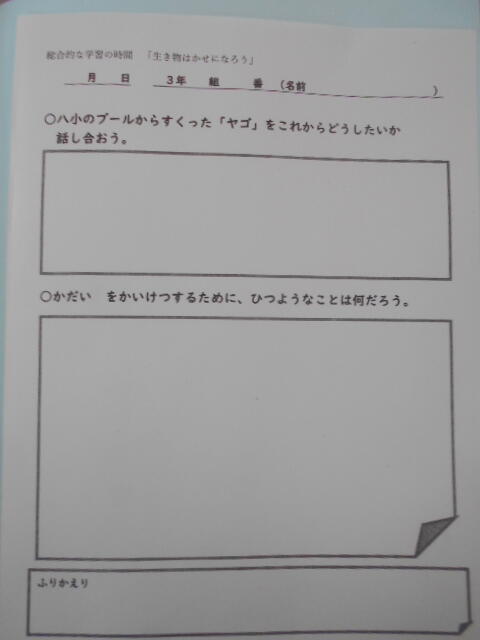 総合的な学習の時間 「生き物はかせになろう」
月 日 3年 組 番 (名前 )
○八小のプールからすくった「ヤゴ」をこれからどうしたいか
話し合おう。
○かだい をかいけつするために、ひつようなことは何だろう。
ふりかえり